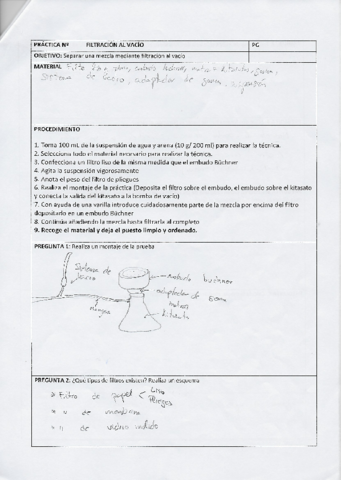 PRÁCTICA Nº FILTRACIÓN AL VACÍO PG
OBJETIVO: Separar una mezcla mediante filtración al vacío
MATERIAL Filtro liso,
sistema de vacío, adaptador de goma, suspensión
PROCEDIMIENTO
1. Toma 100 mL de la suspensión de agua y arena (10 g/ 200 ml) para realizar la técnica.
2. Selecciona todo el material necesario para realizar la técnica.
3. Confecciona un filtro liso de la misma medida que el embudo Büchner
4. Agita la suspensión vigorosamente
5. Anota el peso del filtro de pliegues
6. Realiza el montaje de la práctica (Deposita el filtro sobre el embudo, el embudo sobre el kitasato
y conecta la salida del kitasato a la bomba de vacío)
7. Con ayuda de una varilla introduce cuidadosamente parte de la mezcla por encima del filtro
depositado en un embudo Büchner
8. Continúa añadiendo la mezcla hasta filtrarla al completo
9. Recoge el material y deja el puesto limpio y ordenado.
PREGUNTA 1: Realiza un montaje de la prueba
Sistema de
vacío
embudo buchner
adaptador de goma
matraz
kitasato
PREGUNTA 2: ¿Qué tipos de filtros existen? Realiza un esquema
Filtro de papel < Liso
Pliegues
" de membrana
" de vidrio